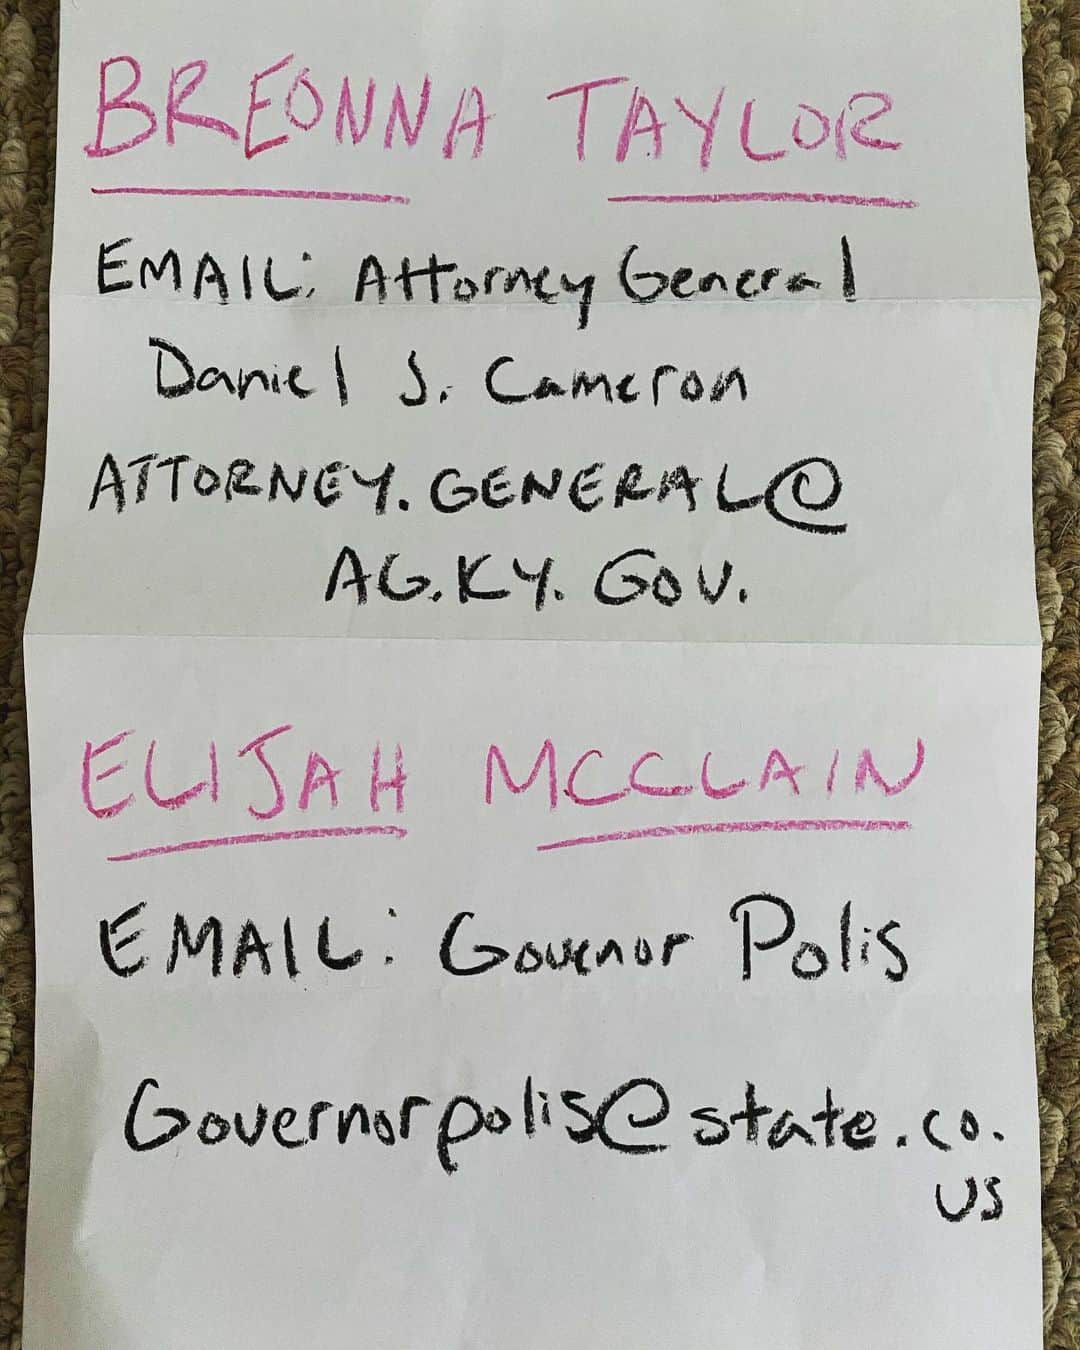 BREONNA TAYLOR
EMAIL: Attorney General
Daniel J. Cameron
ATTORNEY.GENERAL@
AG.KY.GOV.
ELIJAH MCCLAIN
EMAIL: Govenor Polis
Governorpolis@state.co.
us